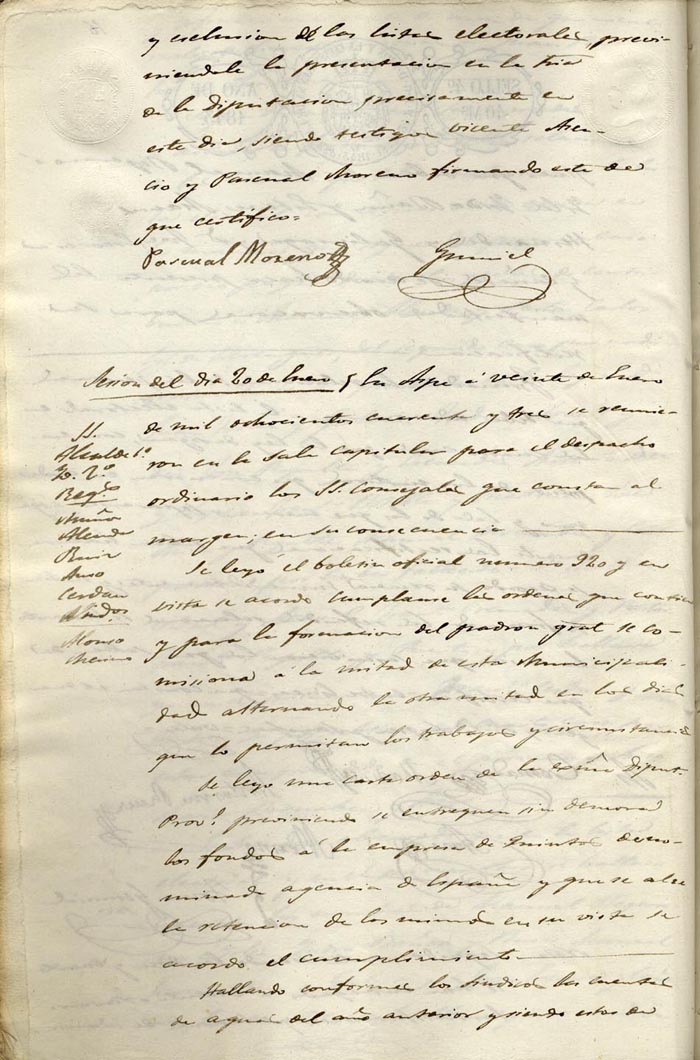 y esclusion de las listas electorales, previ-
niendole la presentacion en la Sría
de la Diputacion precisamente en
este dia, siendo testigos Vicente Asen-
cio y Pascual Moreno firmando este de
que certifico=
Pascual Moreno
Gumiel
Sesion del dia 20 de Enero § En Aspe á veinte de Enero
de mil ochocientos cuarenta y tres se reunie-
ron en la Sala Capitular para el despacho
ordinario los SS. Consejales que constan al
margen; en su consecuencia
SS.
Alcalde 1º
Yd. 2º
Regs.
Muños
Alcaraz
Ruiz
Cerdan
Sindos
Alonso
Se leyó el boletin oficial numero 920 y en
vista se acordo cumplanse las ordenes que contiene
y para la formacion del padron gral se co-
misiona á la mitad de esta Municipali-
dad alternando la otra mitad en los dias
que lo permitan los trabajos y circunstancias
Se leyo una carta orden de la exma Diput.
Provl. previniendo se entreguen sin demora
los fondos á la empresa de Quintos deno-
minada agencia de España y que se alce
la retencion de los mismos en su vista se
acordo el cumplimiento
Hallando conformes los Sindicos las cuentas
de aguas del año anterior y siendo estas de